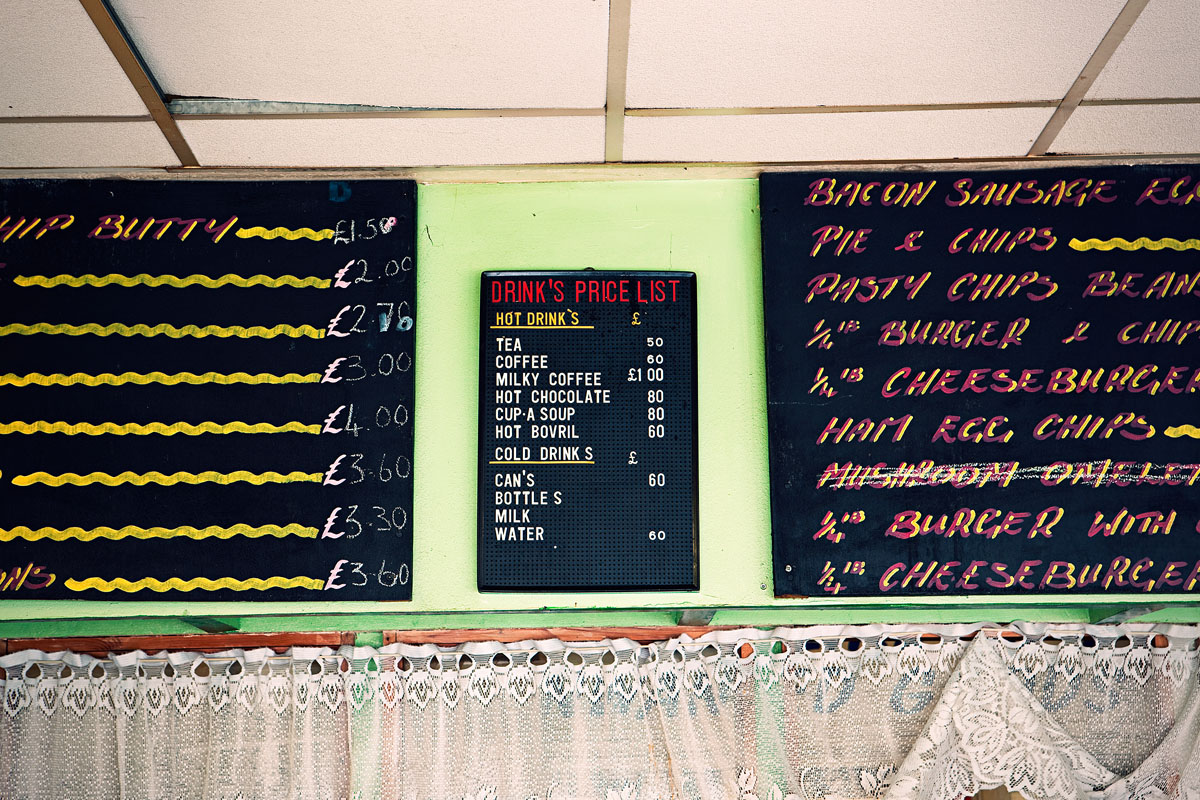 HIP BUTTY £1.50
£2.00
£2.76
£3.00
£4.00
£3.60
£3.30
£3.60
DRINK'S PRICE LIST
HOT DRINK'S £
TEA 50
COFFEE 60
MILKY COFFEE £1 00
HOT CHOCOLATE 80
CUP·A SOUP 80
HOT BOVRIL 60
COLD DRINK S £
CAN'S 60
BOTTLE S
MILK
WATER 60
BACON SAUSAGE EGG
PIE & CHIPS
PASTY CHIPS BEAN
1/4 lb BURGER & CHIP
1/4 lb CHEESEBURGER
HAM EGG CHIPS
MUSHROOM OMELET
1/4 lb BURGER WITH
1/4 lb CHEESEBURGER